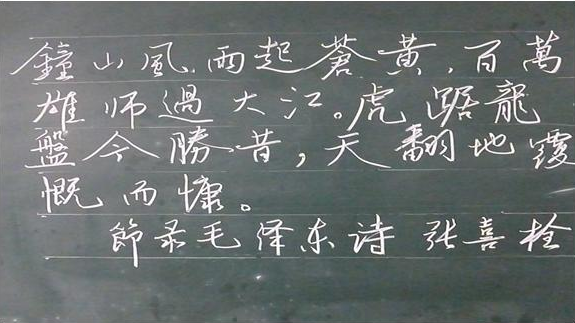 鐘山風雨起蒼黃，百萬
雄师過大江。虎踞龍
盤今勝昔，天翻地覆
慨而慷。
節录毛泽东诗 张喜栓